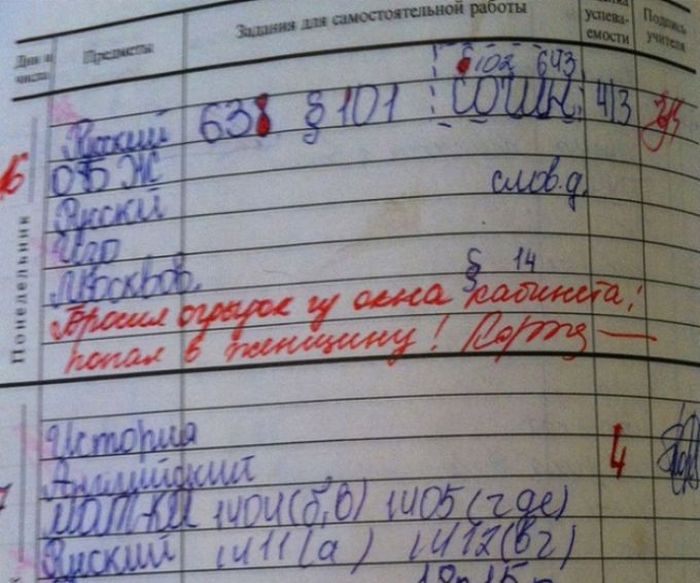 Дни и числа
Предметы
Задания для самостоятельной работы
успева-
емости
Подпись
учителя
§102 643
Русский 638 §101 СОЧИН. 4/3
16
Понедельник
ОБЖ
Рускй слов.д.
Изо
Москвов. § 14
Бросил огрызок из окна кабинета,
попал в женщину!
История
Английский 4
мат-ка 1404(б,в) 1405(где)
Руский 1411(а) 1412(вг)